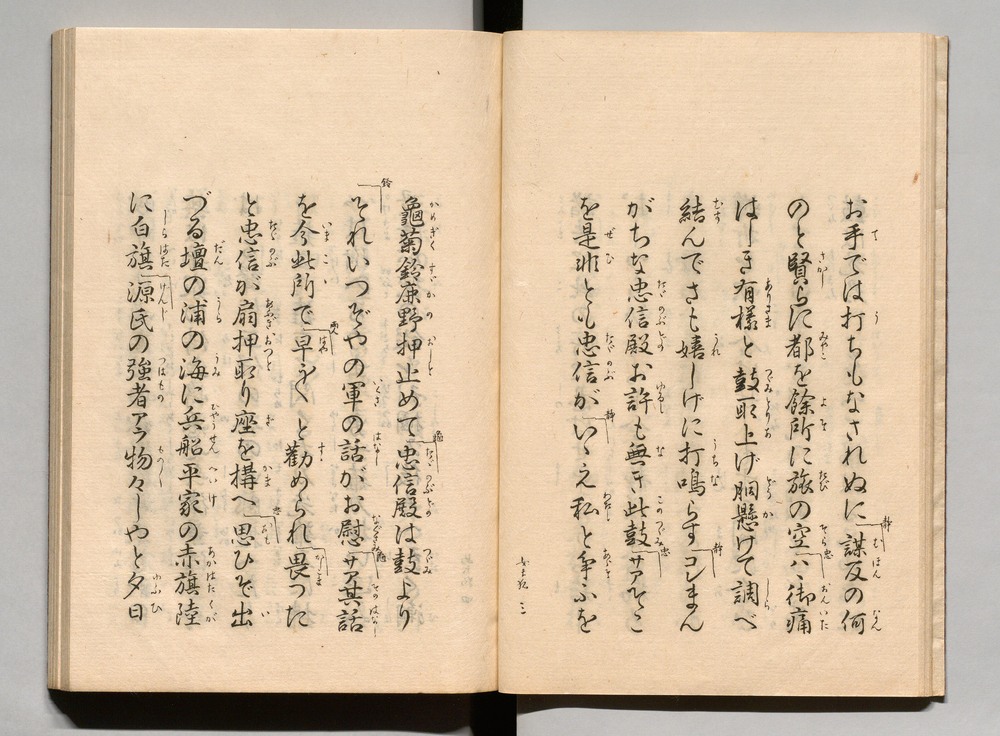 お手では打ちもなされぬに謀反の何
のと賢らに都を餘所に旅の空ハヽ御痛
はしき有様と鼓取上げ胴懸けて調べ
結んでさも嬉しげに打鳴らすコレまん
がちな忠信殿お許も無き此鼓サアそこ
を是非とも忠信がいゝえ私と争ふを
龜菊鈴鹿野押止めて忠信殿は鼓より
それいつぞやの軍の話がお慰サア其話
を今此所で早く〱と勸められ畏つた
と忠信が扇押取り座を構へ思ひぞ出
づる壇の浦の海に兵船平家の赤旗陸
に白旗源氏の強者アラ物々しやと夕日